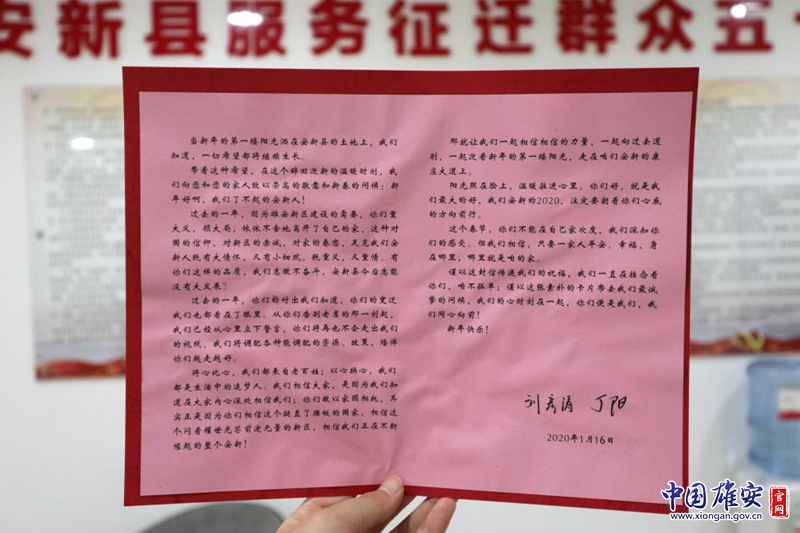 安新县服务征迁群众五
当新年的第一缕阳光洒在安新县的土地上，我们
知道，一切希望都将继续生长。
带着这种希望，在这个辞旧迎新的温暖时刻，我
们向您和您的家人致以崇高的敬意和新春的问候：新
年好啊，我们了不起的安新人！
过去的一年，因为雄安新区建设的需要，你们重
大义，顾大局，依依不舍地离开了自己的家，这种对
国的信仰，对新区的赤诚，对家的眷恋，足见我们安
新人既有大情怀，又有小细腻，既重义，又重情。有
你们这样的品质，我们怎敢不奋斗，安新县今后怎能
没有大发展？
过去的一年，你们的付出我们知道，你们的变迁
我们也都看在了眼里。从你们告别老屋的那一刻起，
我们已经从心里立下誓言，你们将再也不会走出我们
的视线，我们将调配各种能调配的资源、政策，陪伴
你们越走越好。
将心比心，我们都来自老百姓；以心换心，我们
都是生活中的追梦人。我们相信大家，是因为我们知
道在大家内心深处相信我们；你们敢以家园相托，其
实正是因为你们相信这个挺直了腰板的国家，相信这
个闪着耀世光芒前途无量的新区，相信我们正在不断
崛起的整个安新！
那就让我们一起相信相信的力量，一起向过去道
别，一起迎着新年的第一缕阳光，走在咱们安新的康
庄大道上。
阳光照在脸上，温暖驻进心里。你们好，就是我
们最大的好，我们安新的2020，注定要朝着你们心底
的方向前行。
这个春节，你们不能在自己家欢度，我们深知你
们的感受。但我们相信，只要一家人平安、幸福，身
在哪里，哪里就是咱的家。
谨以这封信传递我们的祝福，我们一直在挂念着
你们，咱不孤单；谨以这张素朴的卡片带去我们最诚
挚的问候，我们的心时刻在一起，你们便是我们，我
们同心向前！
新年快乐！
刘彦涛 丁阳
2020年1月16日
中国雄安 官网
www.xiongan.gov.cn